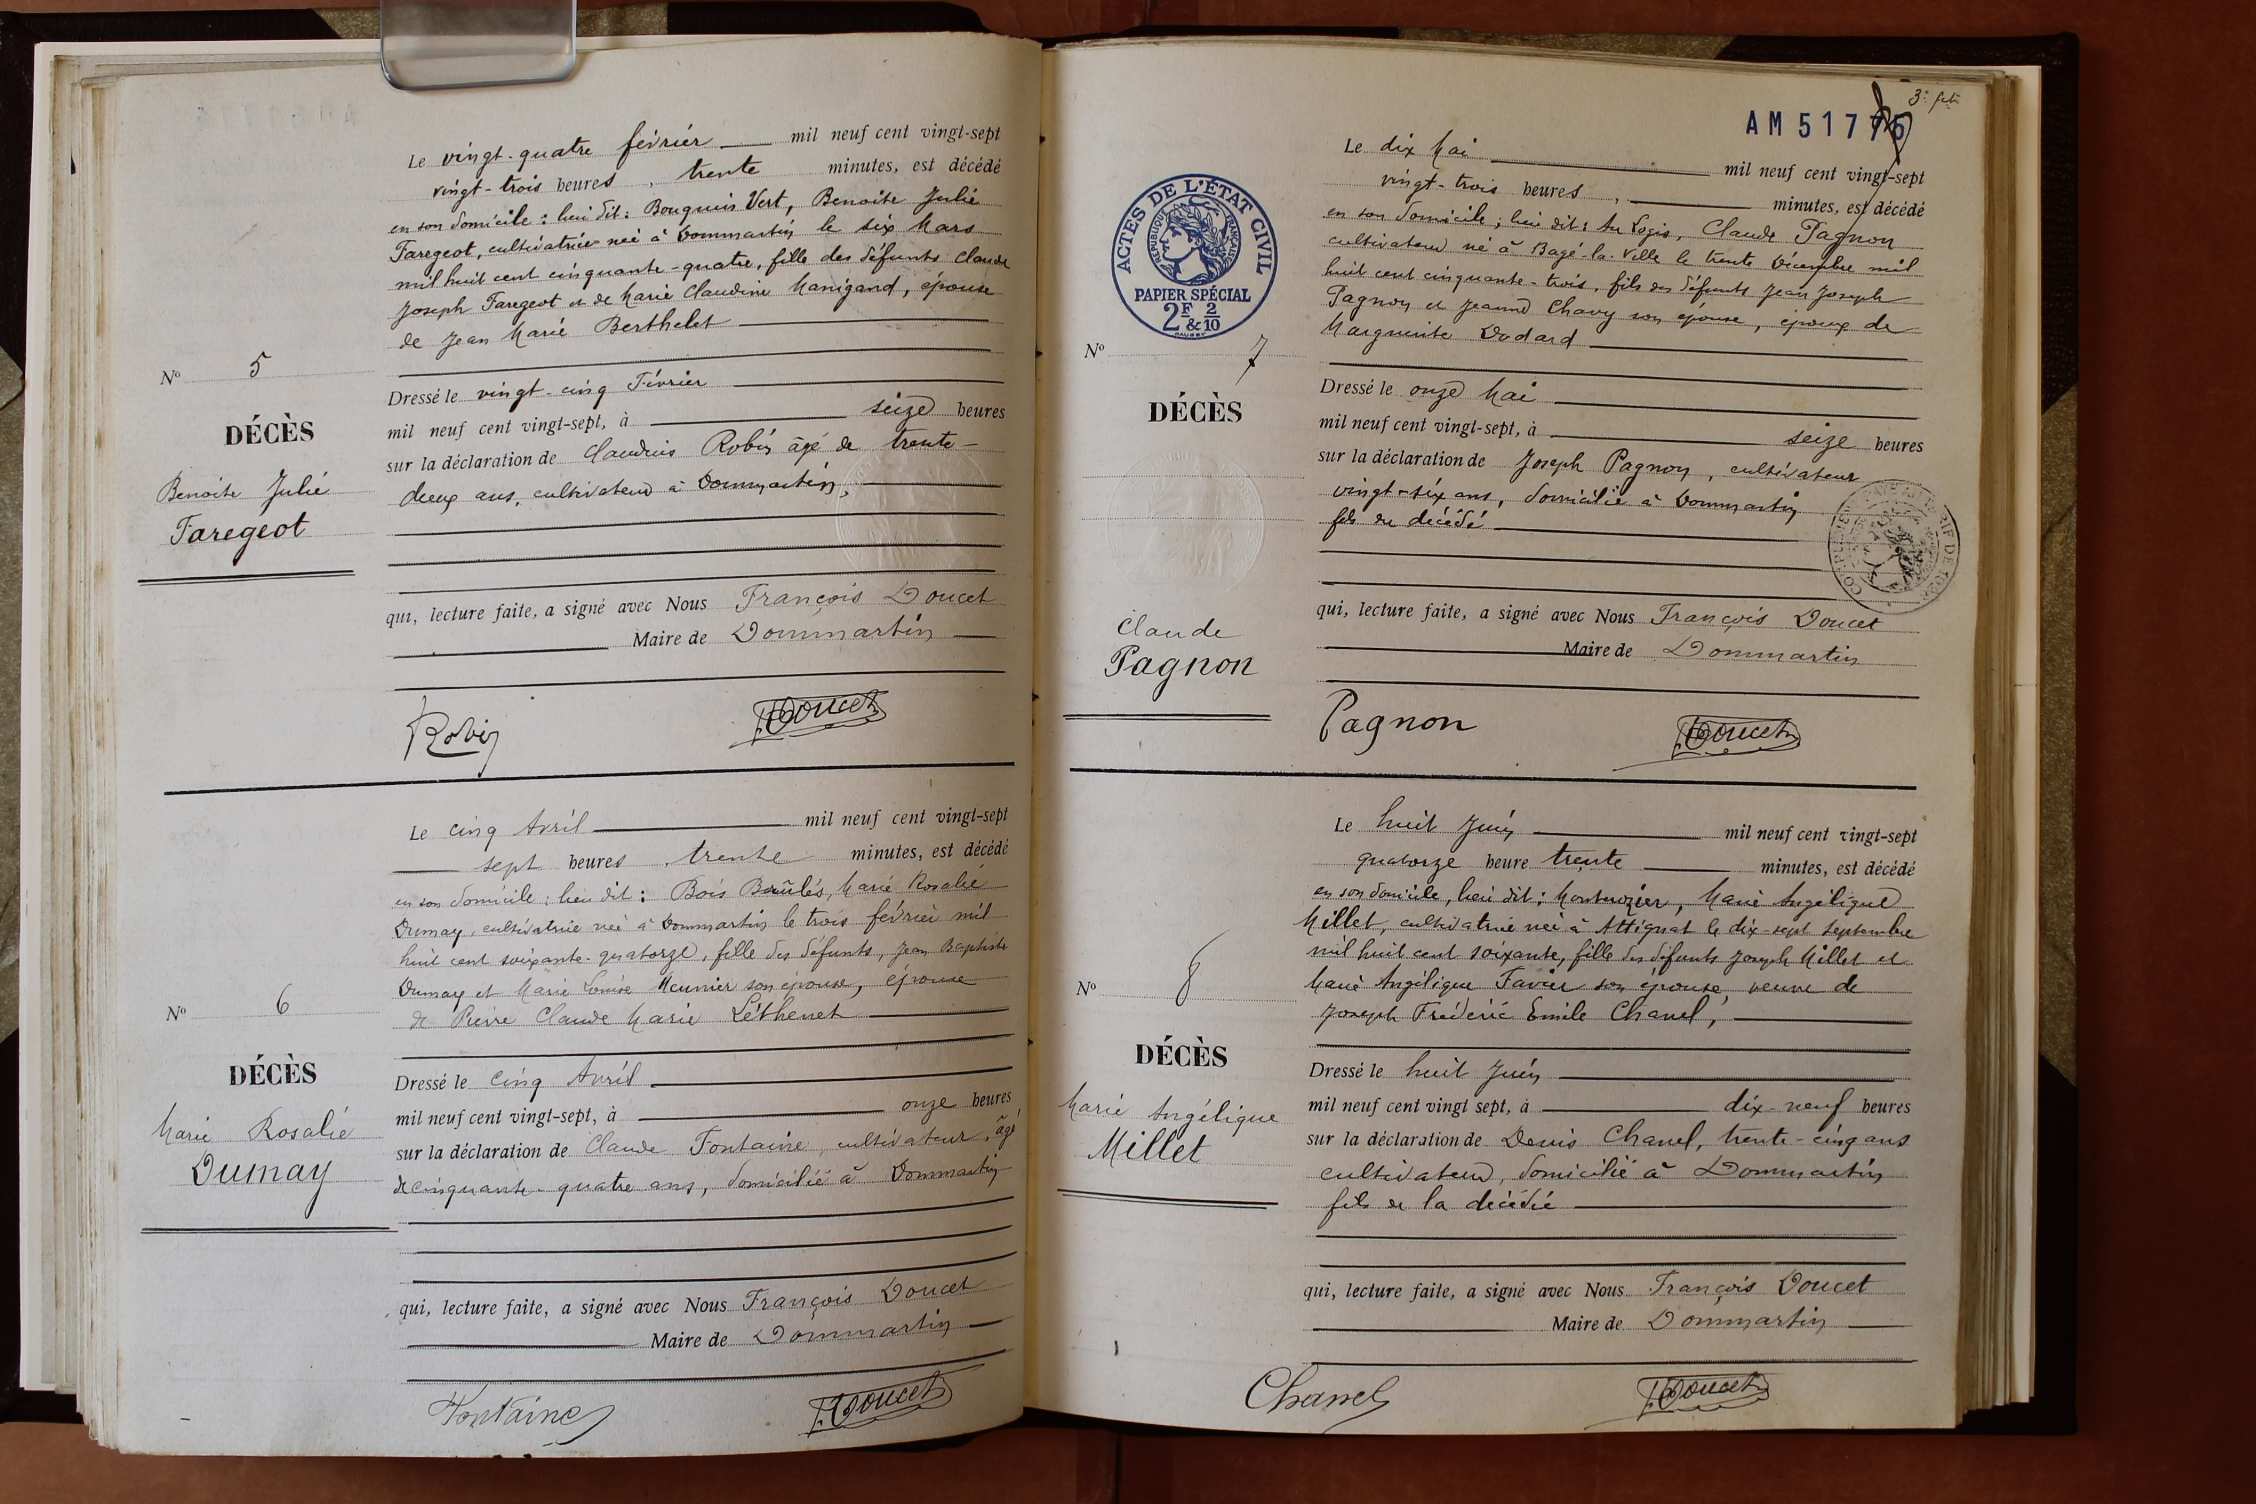 Le vingt-quatre février mil neuf cent vingt-sept
vingt-trois heures, trente minutes, est décédé
en son domicile : lieu dit : Bouquins Vert, Benoite Julie
Faregeot, cultivatrice née à Dommartin le six Mars
mil huit cent cinquante-quatre, fille des défunts Claude
Joseph Faregeot et de Marie Claudine Manigand, épouse
de Jean Marie Berthelet
Nº 5
DÉCÈS
Benoite Julie
Faregeot
Dressé le vingt-cinq Février
mil neuf cent vingt-sept, à seize heures
sur la déclaration de Claudius Robin âgé de trente-
deux ans, cultivateur à Dommartin,
qui, lecture faite, a signé avec Nous François Doucet
Maire de Dommartin
Robin
F. Doucet
Le cinq Avril mil neuf cent vingt-sept
sept heures, trente minutes, est décédé
en son domicile ; lieu dit : Bois Brûlés, Marie Rosalie
Dumay, cultivatrice née à Dommartin le trois février mil
huit cent soixante-quatorze, fille des défunts, Jean Baptiste
Dumay et Marie Louise Meunier son épouse, épouse
de Pierre Claude Marie Léthenet
Nº 6
DÉCÈS
Marie Rosalie
Dumay
Dressé le cinq Avril
mil neuf cent vingt-sept, à onze heures
sur la déclaration de Claude Fontaine, cultivateur, âgé
de cinquante-quatre ans, domicilié à Dommartin
qui, lecture faite, a signé avec Nous François Doucet
Maire de Dommartin
Fontaine
F. Doucet
3e
AM 51775
ACTES DE L'ÉTAT CIVIL
RÉPUBLIQUE FRANÇAISE
PAPIER SPÉCIAL
2F & 2/10
Le dix Mai mil neuf cent vingt-sept
vingt-trois heures, minutes, est décédé
en son domicile ; lieu dit : Au Logis, Claude Pagnon
cultivateur né à Bagé-la-Ville le trente Décembre mil
huit cent cinquante-trois, fils des défunts Jean Joseph
Pagnon et Jeanne Chavy son épouse, époux de
Marguerite Dodard
Nº 7
DÉCÈS
Claude
Pagnon
Dressé le onze Mai
mil neuf cent vingt-sept, à seize heures
sur la déclaration de Joseph Pagnon, cultivateur
vingt-six ans, domicilié à Dommartin
fils du décédé
qui, lecture faite, a signé avec Nous François Doucet
Maire de Dommartin
Pagnon
F. Doucet
Le huit Juin mil neuf cent vingt-sept
quatorze heure trente minutes, est décédé
en son domicile, lieu dit : Montmozier, Marie Angélique
Millet, cultivatrice née à Attignat le dix-sept septembre
mil huit cent soixante, fille des défunts Joseph Millet et
Marie Angélique Favier son épouse, veuve de
Joseph Frédéric Emile Chanel,
Nº 8
DÉCÈS
Marie Angélique
Millet
Dressé le huit Juin
mil neuf cent vingt sept, à dix-neuf heures
sur la déclaration de Denis Chanel, trente-cinq ans
cultivateur, domicilié à Dommartin
fils de la décédée
qui, lecture faite, a signé avec Nous François Doucet
Maire de Dommartin
Chanel
F. Doucet